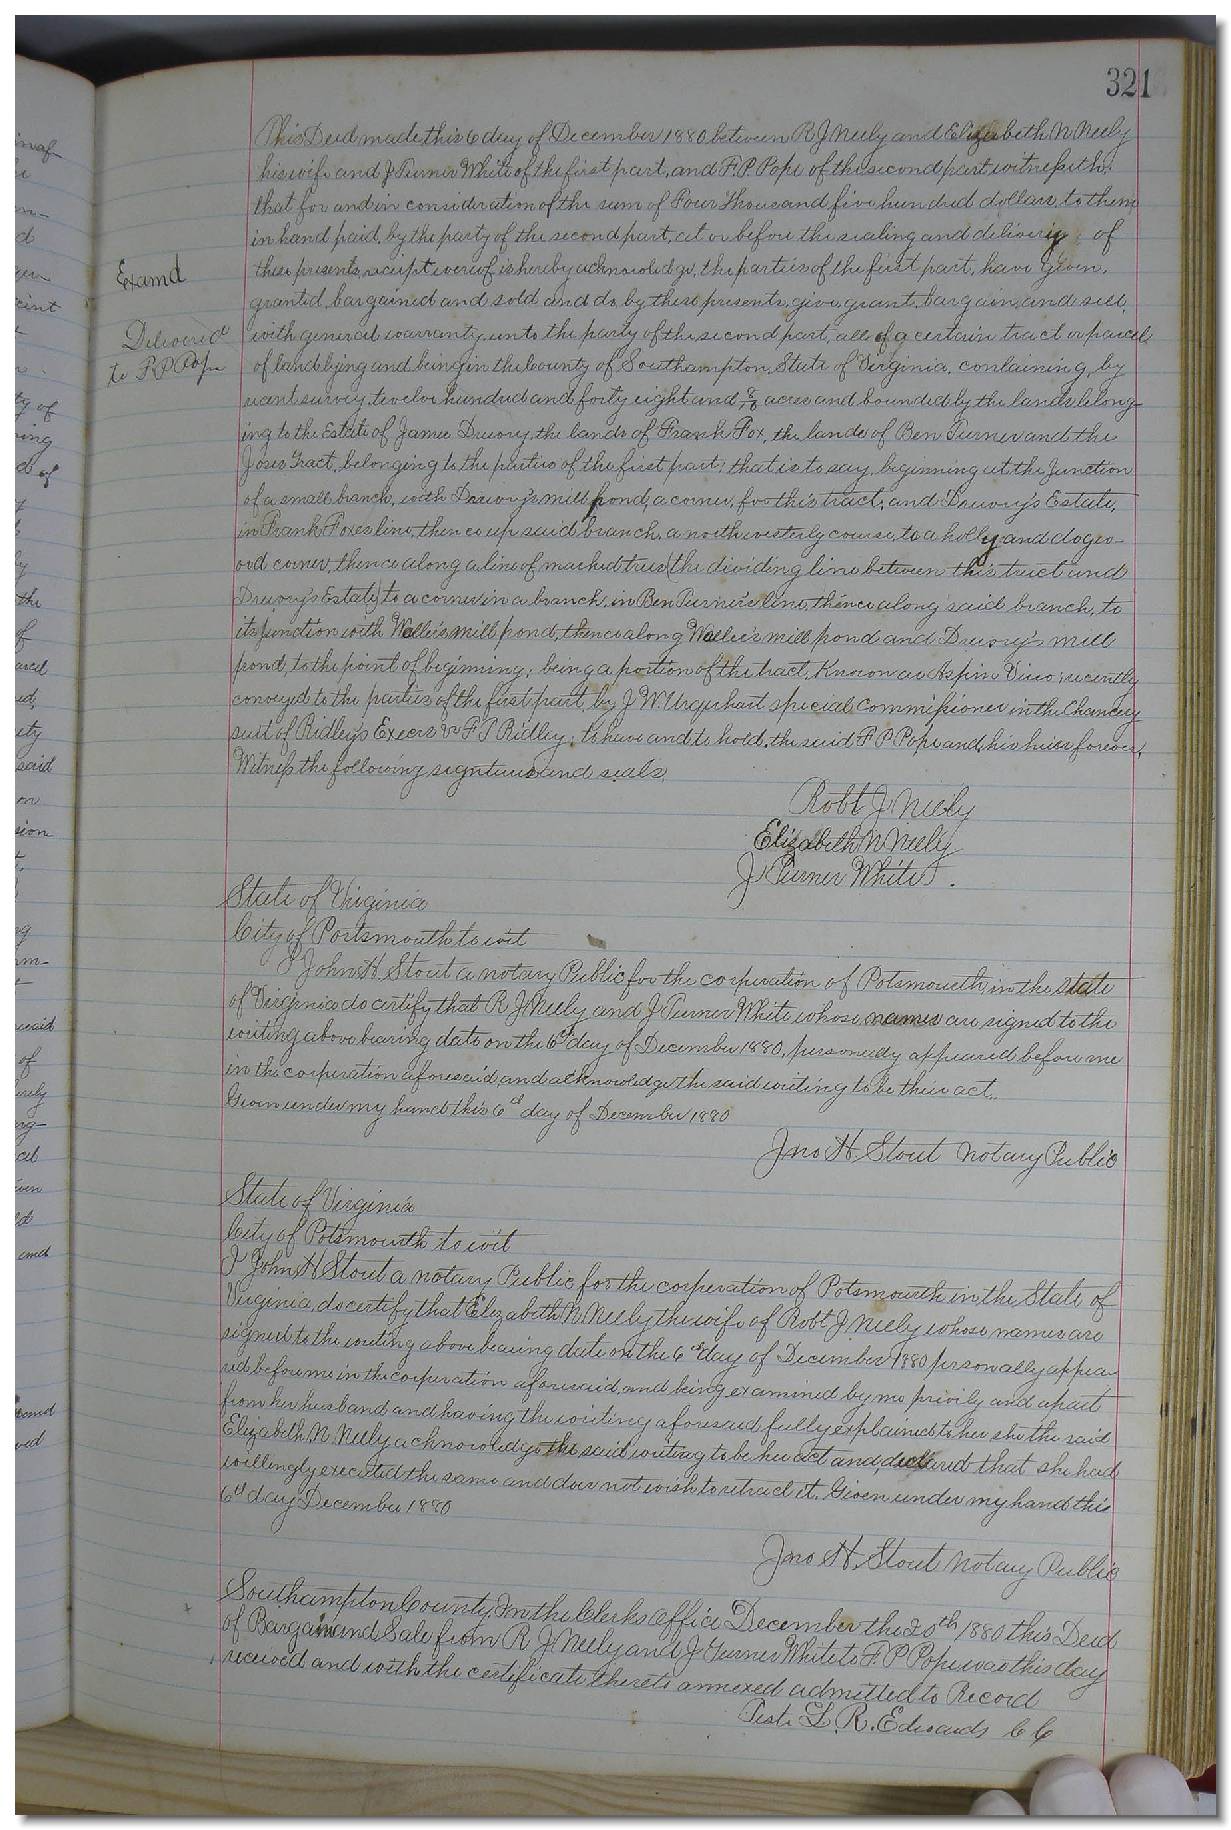 321
This Deed made this 6 day of December 1880 between R J Neely and Elizabeth N Neely
his wife and J Turner White of the first part, and F. P. Pope of the second part, witnesseth:
that for and in consideration of the sum of Four Thousand five hundred dollars, to them
in hand paid, by the party of the second part, at or before the sealing and delivery of
these presents, receipt whereof is hereby acknowledge, the parties of the first part, have given,
granted, bargained and sold and do by these presents, give, grant, bargain, and sell,
with general warranty, unto the party of the second part, all of a certain tract or parcel
of land lying and being in the County of Southampton, State of Virginia, containing, by
recent survey, twelve hundred and forty eight and acres and bounded by the lands belong-
ing to the Estate of James Drewry, the lands of Frank Fox, the lands of Ben Turner and the
Tract, belonging to the parties of the first part; that is to say, beginning at the Junction
of a small branch, with Drewry's mill pond, a corner, for this tract, and Drewry's Estate,
in Frank Foxes line, thence up said branch, a northwesterly course, to a holly and dogwo-
ood corner, thence along a line of marked trees (the dividing line between this tract and
Drewry's Estate) to a corner in a branch, in Ben Turner's line, thence along said branch, to
its junction with mill pond, thence along mill pond and Drewry's mill
pond, to the point of beginning; being a portion of the tract, Known as Aspin ; recently
conveyed to the parties of the first part, by J. W. Urquhart special commissioner in the Chancery
suit of Ridley's Execrs vs F T Ridley; to have and to hold, the said F P Pope and his heirs forever,
Witness the following signtures and seals.
Robt J Neely
Elizabeth N Neely
J Turner White.
Examd
Delivered
to F P Pope
State of Virginia
City of Portsmouth to wit
I John H. Stout a notary Public for the corporation of Potsmouth in the state
of Virginia do certify that R J Neely and J Turner White whose names are signed to the
writing above bearing date on the 6th day of December 1880, personally appeared before me
in the corporation aforesaid and acknowledge the said writing to be their act.
Given under my hand this 6th day of December 1880
Jno H. Stout Notary Public
State of Virginia
City of Potsmouth to wit
I John H Stout a notary Public for the corporation of Potsmouth in the State of
Virginia, do certify that Elizabeth N. Neely the wife of Robt J Neely whose names are
signed to the writing above bearing date on the 6th day of December 1880 personally appea-
red before me in the corporation aforesaid, and being examined by me privily and apart
from her husband and having the writing aforesaid fully explained to her she the said
Elizabeth N. Neely acknowledge the said writing to be her act and declared that she had
willingly executed the same and does not wish to retract it. Given under my hand this
6th day December 1880
Jno H. Stout Notary Public
Southampton County, In the Clerks office December the 20th 1880 this Deed
of Bargain and Sale from R J Neely and J Turner White to F. P Pope was this day
received and with the certificate thereto annexed admitted to Record
Teste L. R. Edwards C C